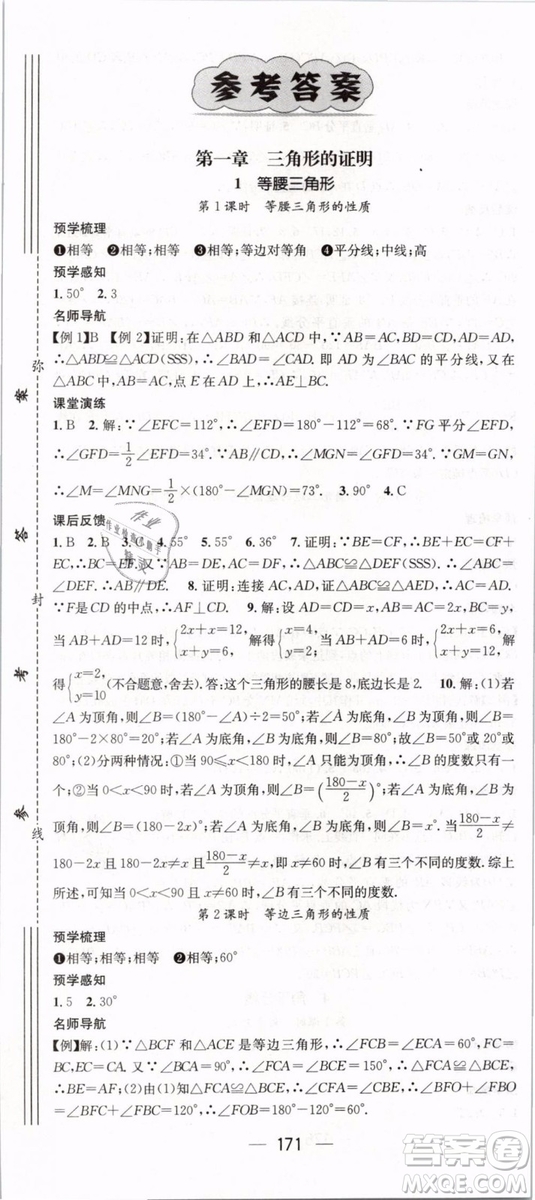 参考答案
第一章 三角形的证明
1 等腰三角形
第1课时 等腰三角形的性质
预学梳理
❶相等 ❷相等;相等 ❸相等;等边对等角 ❹平分线;中线;高
预学感知
1. 50° 2. 3
名师导航
【例1】B 【例2】证明:在△ABD和△ACD中,∵AB=AC,BD=CD,AD=AD,
∴△ABD≌△ACD(SSS).∴∠BAD=∠CAD.即AD是∠BAC的平分线,又
∵在△ABC中,AB=AC,点E在BC上,∴AE⊥BC.
课堂演练
1. B 2. 解:∵∠EFC=112°,∴∠EFD=180°-112°=68°.∵FG平分∠EFD,
∴∠GFD=1/2∠EFD=34°.∵AB∥CD,∴∠MGN=∠GFD=34°.∵GM=GN,
∴∠M=∠MNG=1/2×(180°-34°)=73°. 3. 90° 4. C
课后反馈
1. B 2. B 3. C 4. 55° 5. 55° 6. 36° 7. 证明:∵BE=CF,∴BE+EC=CF+
EC,即BC=EF.又∵AB=DE,AC=DF,∴△ABC≌△DEF(SSS).∴∠ABC=
∠DEF.∴AB∥DE. 8. 证明:连接AC,AD,证△ABC≌△AED,∴AC=AD.又
∵F是CD的中点,∴AF⊥CD. 9. 解:设AD=CD=x,AB=2x,BC=y,
当AB+AD=12时,{2x+x=12, x+y=6, 解得{x=4, y=2;当AB+AD=6时,{2x+x=6, x+y=12, 解
得{x=2, y=10(不合题意,舍去).答:这个三角形的腰长是8,底边长是2. 10. 解:(1)若
∠A为顶角,则∠B=(180°-∠A)÷2=50°;若∠A为底角,∠B为顶角,则∠B=
180°-2×80°=20°;若∠A为底角,∠B为底角,则∠B=80°.故∠B=50°或20°或
80°;(2)分两种情况:①当90≤x<180时,∠A只能为顶角,∴∠B的度数只有一
个;②当0<x<90时,若∠A为顶角,则∠B=((180-x)/2)°;若∠A为底角,∠B为
顶角,则∠B=(180-2x)°;若∠A为底角,∠B为底角,则∠B=x°.当(180-x)/2≠
180-2x且180-2x≠x且(180-x)/2≠x,即x≠60时,∠B有三个不同的度数.综上
所述,可知当0<x<90且x≠60时,∠B有三个不同的度数.
第2课时 等边三角形的性质
预学梳理
❶相等;相等;相等 ❷相等;60°
预学感知
1. 5 2. 30°
名师导航
【例】解:(1)∵△BCF和△ACE是等边三角形,∴CF=CB,CE=CA,∠FCB=
∠ECA=60°.∴∠FCB+∠BCA=∠ECA+∠BCA,即∠FCA=∠BCE.∴△BCE
≌△FCA.∴BE=AF;(2)由(1)知△BCE≌△FCA,∴∠CFA=∠CBE.∴∠BOF+
∠AFC=∠BCF+∠CBE.∴∠BOF=∠BCF=60°.∴∠AOB=180°-∠BOF=120°.
171
弥
封
线
参
考
答
案
作业
答案卷